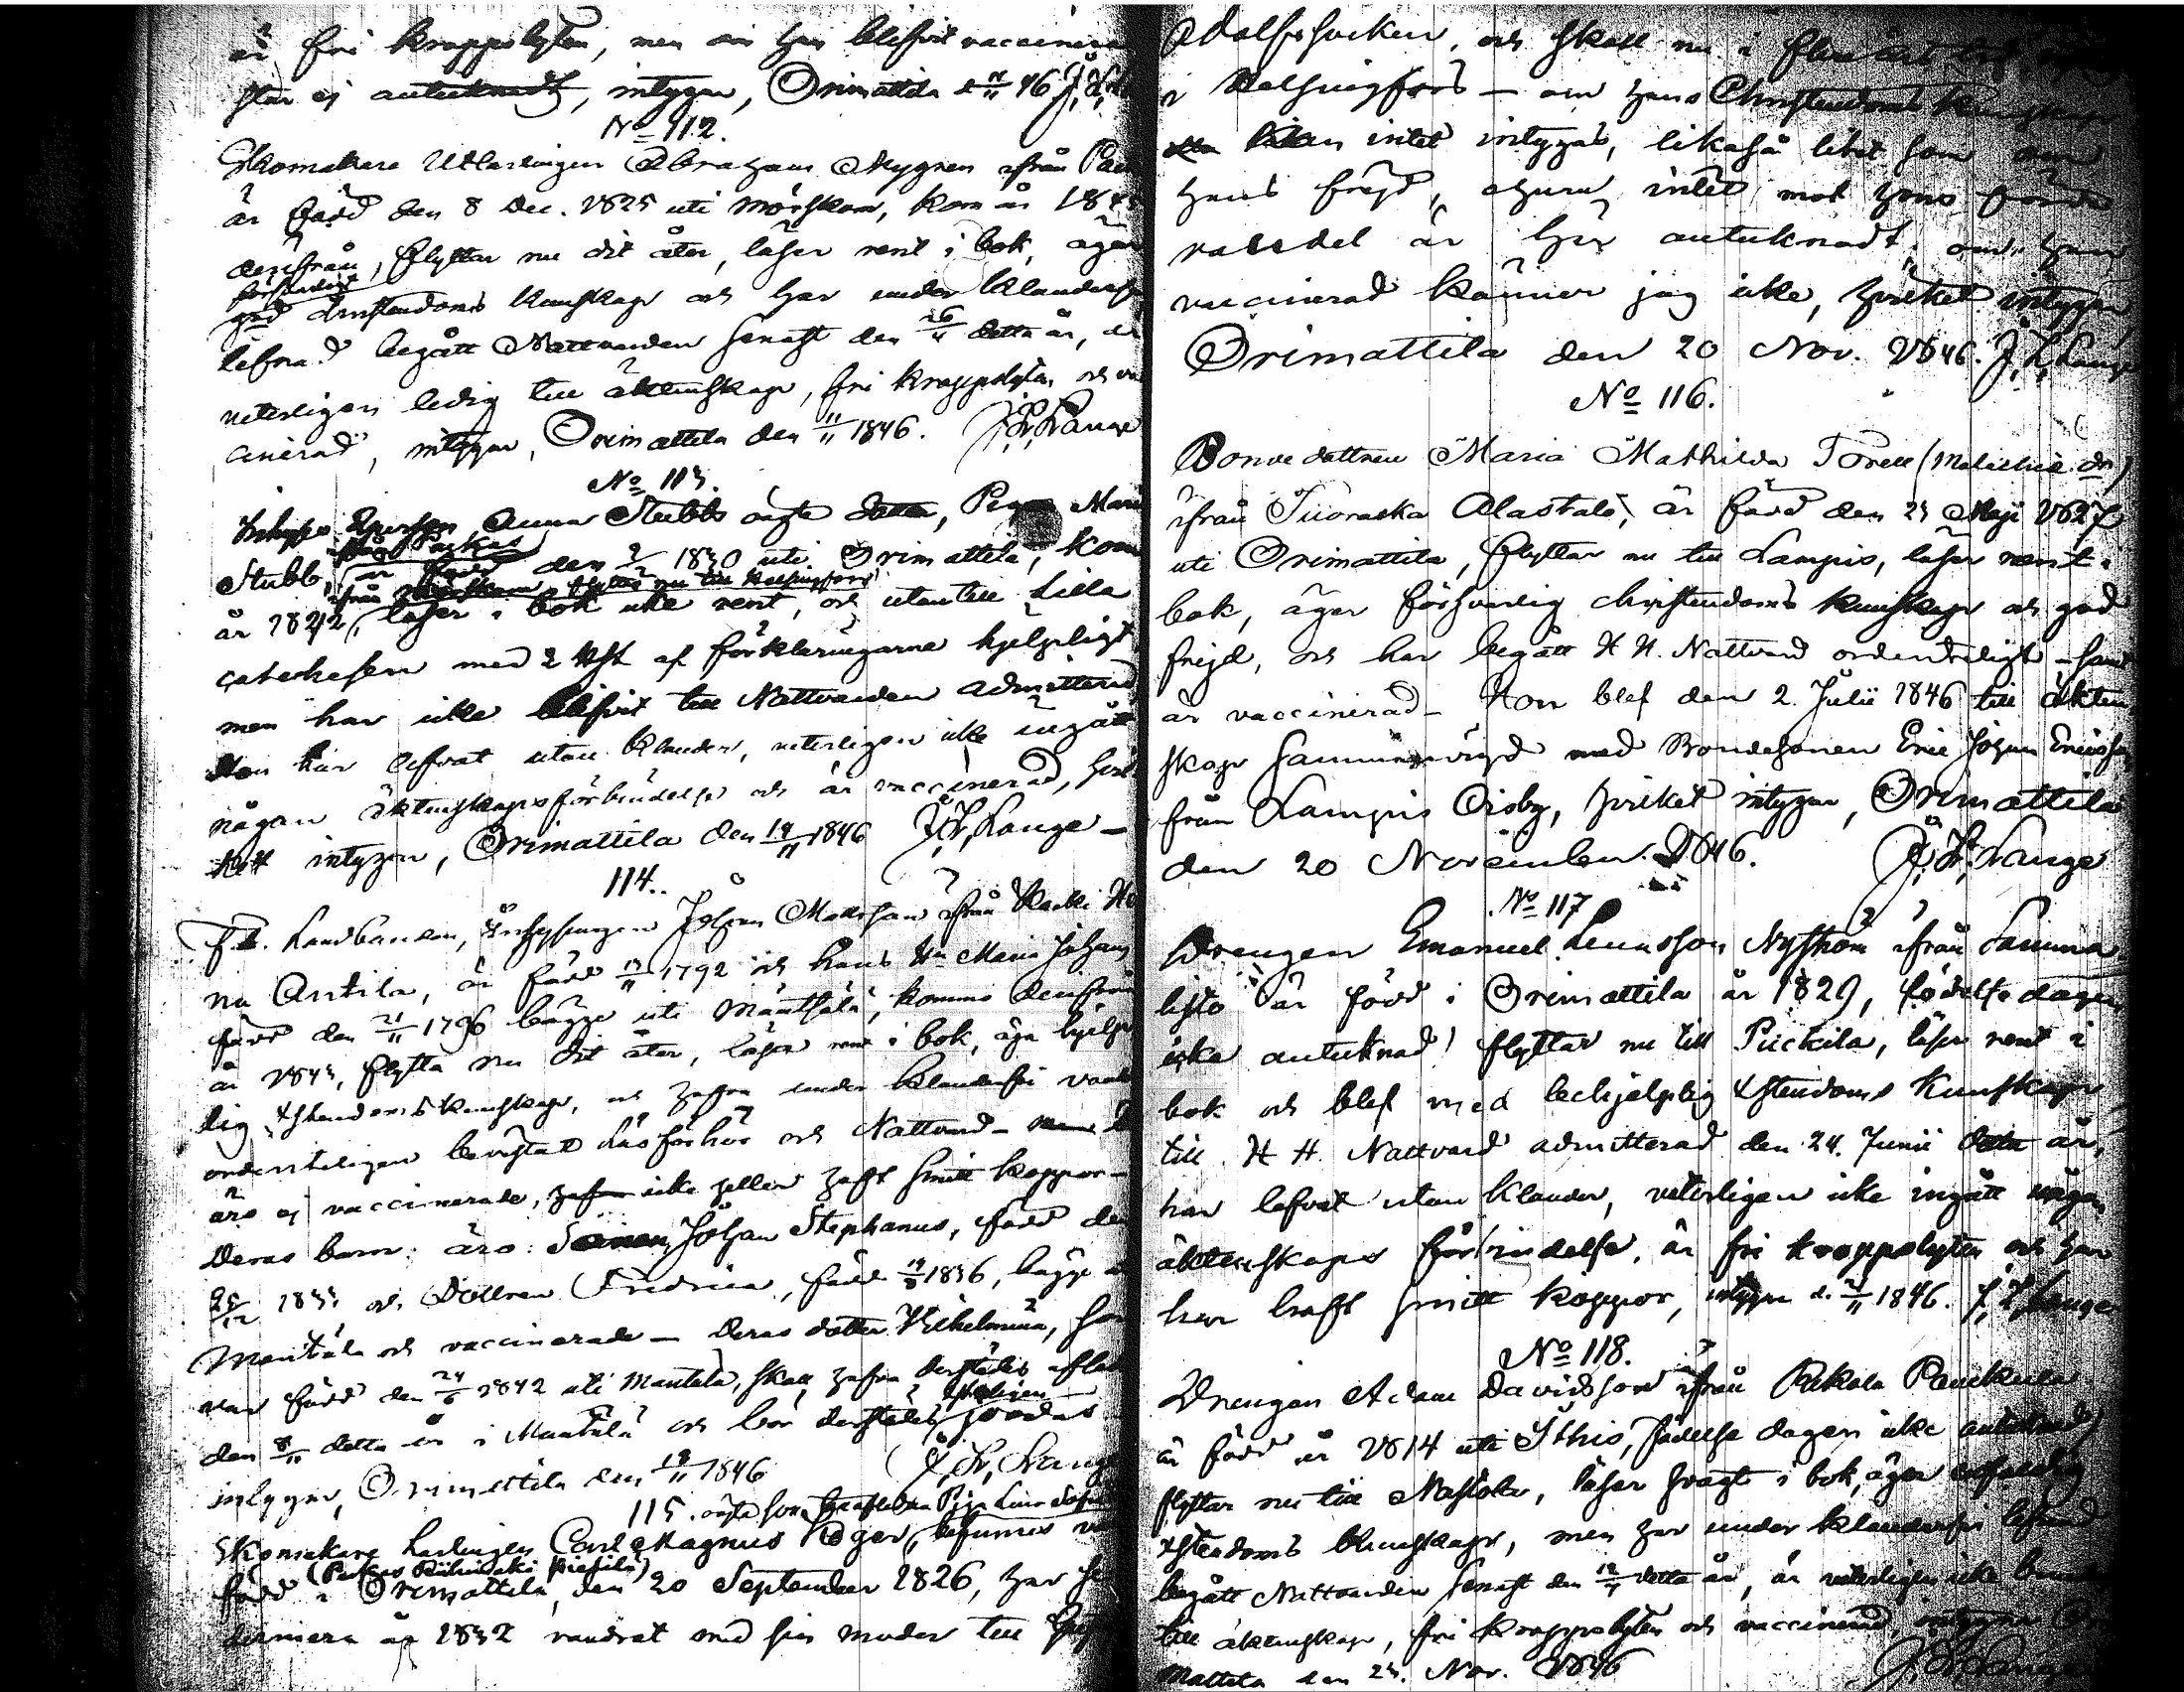 är fri kroppslyten, men om han blifvit vaccinerad
står ej antecknadt, intygar, Orimattila d. 11/11 46 J. H.
No 112.
Skomakare Utlärlingen Abraham Mygren ifrån
är född den 8 Dec. 1825 uti Mörskom, kom år 184
derifrån, flyttar nu dit åter, läser rent i bok, äger
försvarlig
god kristendoms kunskap och har under klanderfri
lefnad begått Nattvarden senast den 26/ detta år, är
veterligen ledig till äktenskap, fri kroppslyten och vac
cinerad, intygar, Orimattila den 11/11 1846. J. H. Lange
No 113.
Inhyses Anna Stubbs oägta dotter, Maria
ifrån Parkas
Stubb, är född den 2/ 1830 uti Orimattila, kom
ifrån flyttar nu till Helsingfors
år 1842, läser i bok icke rent, och utantill Lilla
catechesen med 2 H.st. af förklaringarna hjelpligt
men har icke blifvit till Nattvarden admitterad
Hon har lefvat utan klander, veterligen icke ingått
någon äktenskapsförbindelse och är vaccinerad, hvil
ket intygar, Orimattila den 14/11 1846 J. H. Lange
114.
F.d. Landbonden, Inhysingen Johan Mattsson ifrån
na Antila, är född /11 1792 och hans Hu Maria Johans
född den 21/11 1796 bägge uti Mäntsälä, kommo derifrån
år 1843, flytta nu dit åter, läsa rent i bok, äga hjelp
lig Xstendoms kunskap, och hafva under klanderfri vandel
ordenteligen bevistat Läsförhör och Nattvard
äro ej vaccinerade, hafva icke heller haft smitt koppor
Deras barn: äro: Sonen Johan Stephanus, född den
/12 183 och Dottren Fredrica, född 19/8 1836, bägge i
Mäntsälä och vaccinerade - Deras dotter Wilhelmina, som
var född den 24/6 1842 uti Mäntsälä, skall hafva derstädes aflidit
den 8/11 detta år i Mäntsälä och bör derstädes jordas
intygar, Orimattila den 19/11 1846 J. H. Lange
115. oägta son
Skomakare Lärlingen Carl Magnus Höger,
född i Orimattila den 20 September 1826, har
dermera år 1832 vandrat med sin moder till
Adolfs socken, och skall nu i flera års tid
i Helsingfors - om hans Christendoms kunskap
kan intet intygas, likaså litet som om
hans frejd, ehuru intet mot hans förra
vandel är här antecknadt. om han
vaccinerad känner jag icke, hvilket intygar
Orimattila den 20 Nov. 1846. J. H. Lange
No 116.
Bonde dottren Maria Mathilda Torell
ifrån Tuoraska Alastalo, är född den 23 Maji 1827
uti Orimattila, flyttar nu till Lampis, läser rent i
bok, äger försvarlig christendoms kunskap och god
frejd, och har begått H. H. Nattvard ordenteligt - samt
är vaccinerad - Hon blef den 2. Julii 1846 till äkten
skap sammanvigd med Bondesonen Eric Johan Ericsson
från Lampis Orsby, hvilket intygar, Orimattila
den 20 November 1846. J. H. Lange
No 117
Drengen Emanuel Nyström ifrån
är född i Orimattila år 1829, födelse dagen
icke antecknad! flyttar nu till Puckila, läser rent i
bok och blef med behjelplig Xstendoms kunskap
till H. H. Nattvard admitterad den 24. Junii detta år,
har lefvat utan klander, veterligen icke ingått någon
äktenskaps förbindelse, är fri kroppslyten och har
haft smitt koppor, intygar d. 21/11 1846. J. H. Lange
No 118.
Drengen Adam Davidsson ifrån Pukala
är född år 1814 uti Ithis, födelse dagen icke antecknad
flyttar nu till Nastola, läser svagt i bok, äger enfaldig
Xstendoms kunskap, men har under klanderfri lefnad
begått Nattvarden senast den detta år, är veterligen icke bunden
till äktenskap, fri kroppslyten och vaccinerad, intygar Ori
mattila den 23. Nov. 1846 J. H. Lange